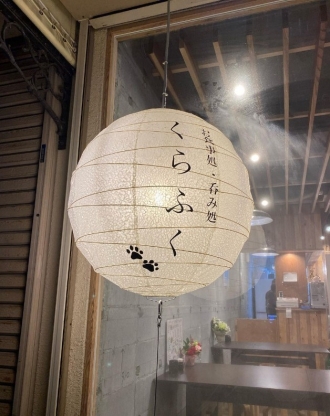 お食事処・呑み処
くらふく